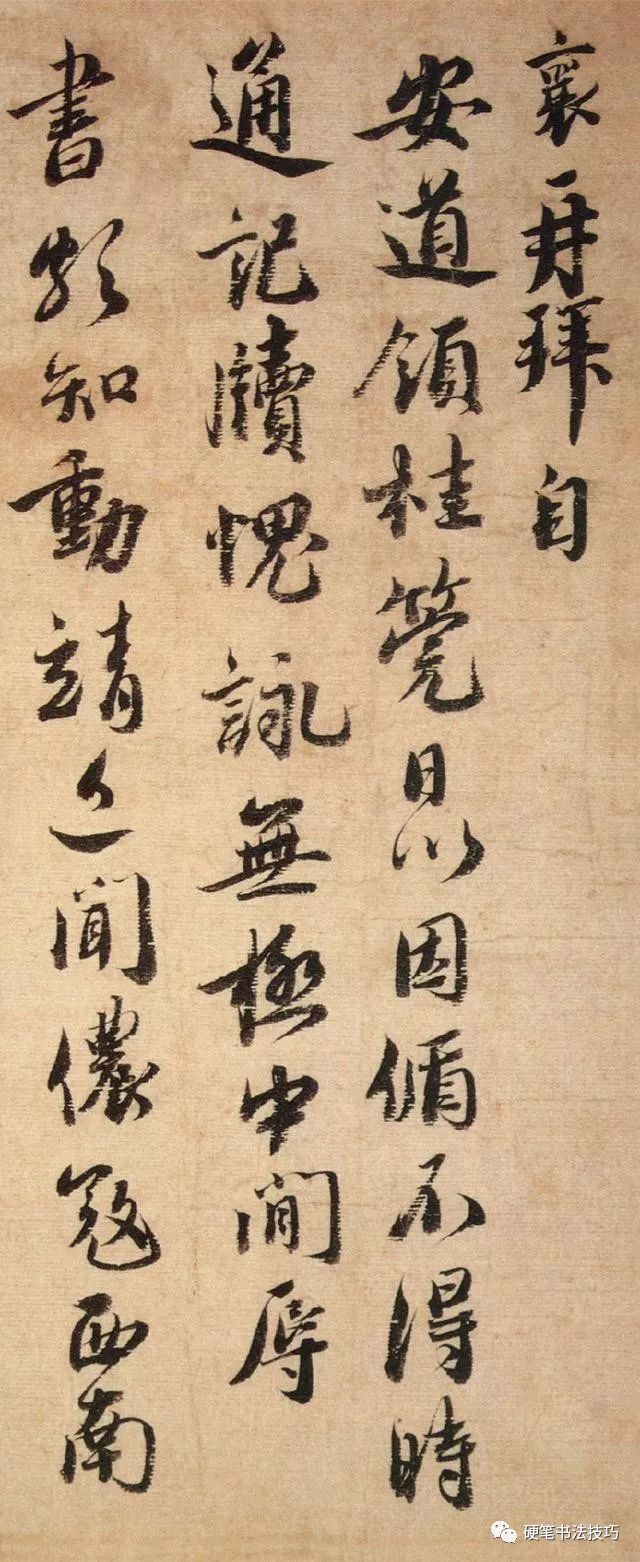 襄再拜自
安道領桂筦日以因循不得時
通記牘愧詠無極中間辱
書頗知動靖近聞儂寇西南
硬笔书法技巧